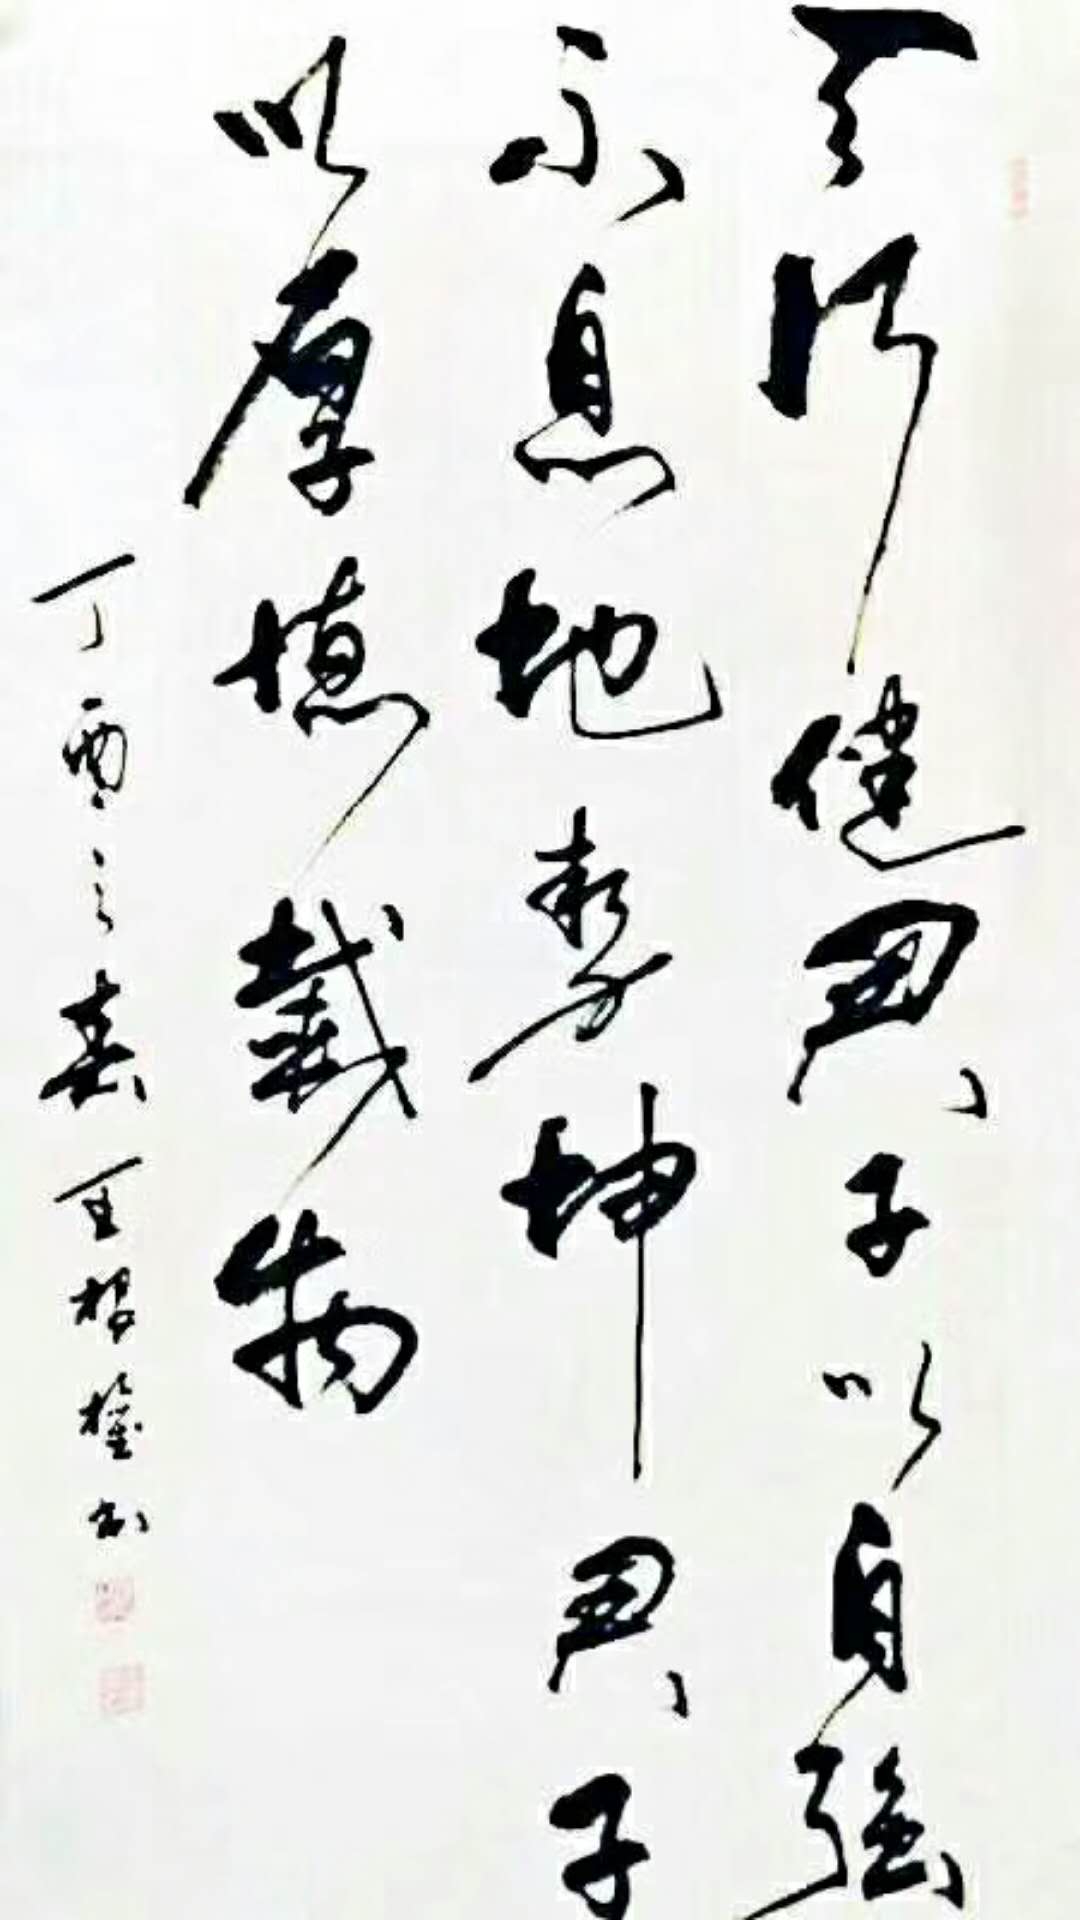 天行健君子以自強
不息地势坤君子
以厚德載物
丁酉之春王根權书